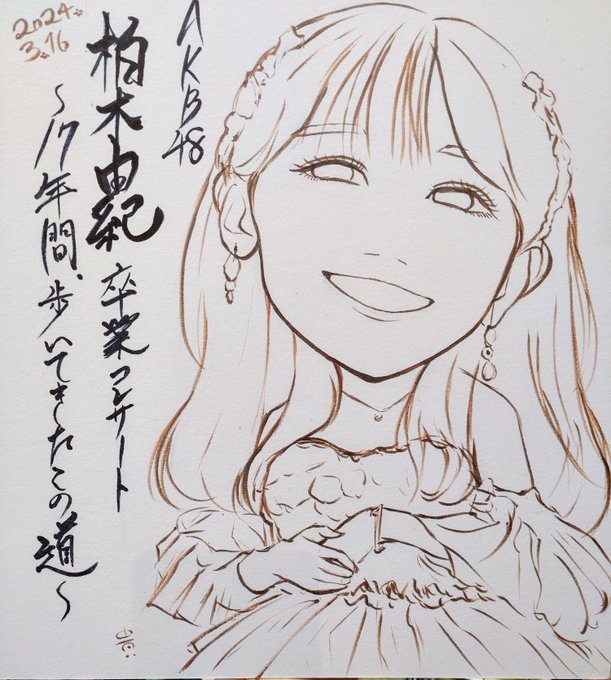 2024.
3.16
AKB48
柏木由紀 卒業コンサート
～17年間、歩いてきたこの道～